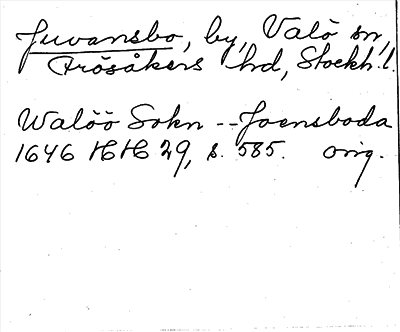 Juvansbo, by, Valö sn,
Frösåkers hd, Stockh. l.
Walöö Sokn -- Joensboda
1646 HH 29, s. 585. orig.